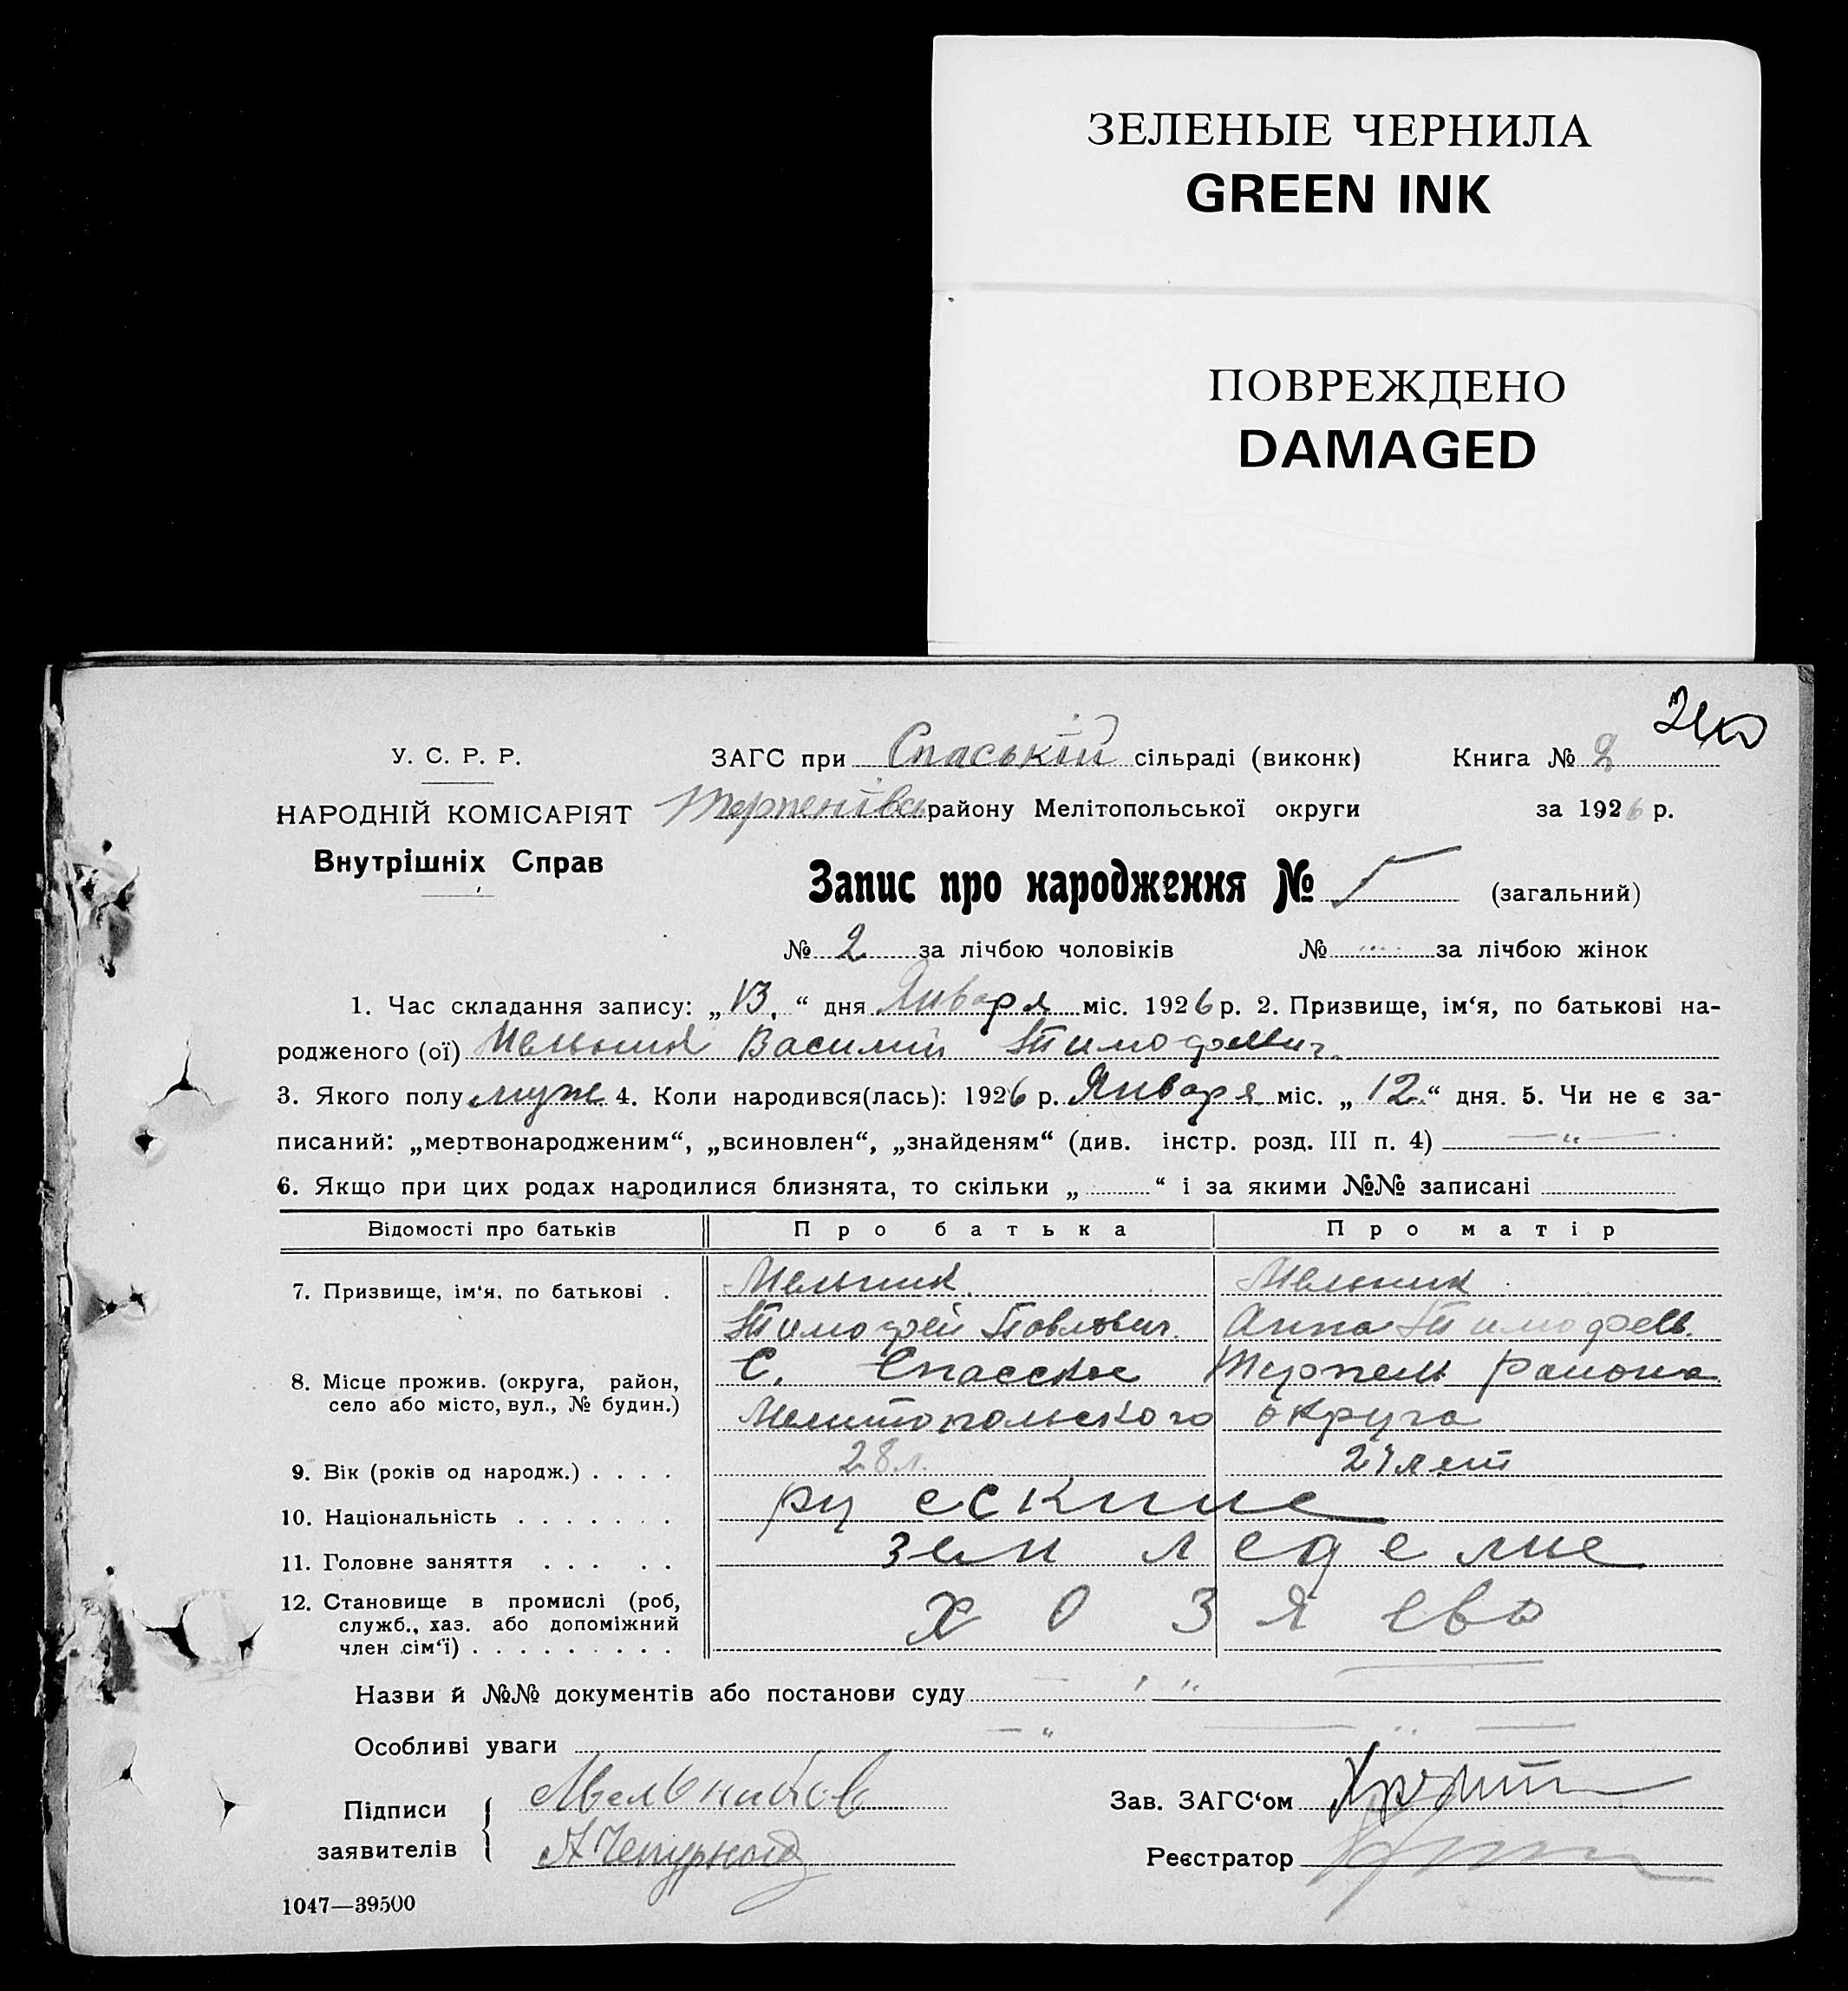 ЗЕЛЕНЫЕ ЧЕРНИЛА
GREEN INK
ПОВРЕЖДЕНО
DAMAGED
У. С. Р. Р.
НАРОДНІЙ КОМІСАРІЯТ
Внутрішніх Справ
ЗАГС при Спаській сільраді (виконк) Книга № 2
Терпенівськ району Мелітопольської округи за 1926 р.
Запис про народження № 5 (загальний)
№ 2 за лічбою чоловіків № за лічбою жінок
1. Час складання запису: „13.“ дня Января міс. 1926 р. 2. Призвище, ім‘я, по батькові на-
родженого (ої) Мельник Василий Тимофеич.
3. Якого полу муж. 4. Коли народився(лась): 1926 р. Января міс. „12.“ дня. 5. Чи не є за-
писаний: „мертвонародженим“, „всиновлен“, „знайденям“ (див. інстр. розд. III п. 4) — „ —
6. Якщо при цих родах народилися близнята, то скільки „ “ і за якими №№ записані
Відомості про батьків Про батька Про матір
7. Призвище, ім‘я, по батькові . Мельник Мельник
Тимофей Павлович. Анна Тимофеев.
8. Місце прожив. (округа, район, село або місто, вул., № будин.) С. Спасское Терпен района
Мелитопольского округа
9. Вік (років од народж.) . . . . 28 л. 27 лет
10. Національність . . . . . . . русские
11. Головне заняття . . . . . земледелие
12. Становище в промислі (роб, служб., хаз. або допоміжний член сім‘ї) . . . . . . . . . хозяева
Назви й №№ документів або постанови суду — „ —
Особливі уваги — „ — „ —
Підписи заявителів Мельников
А Чепурной
Зав. ЗАГС‘ом
Реєстратор
1047—39500